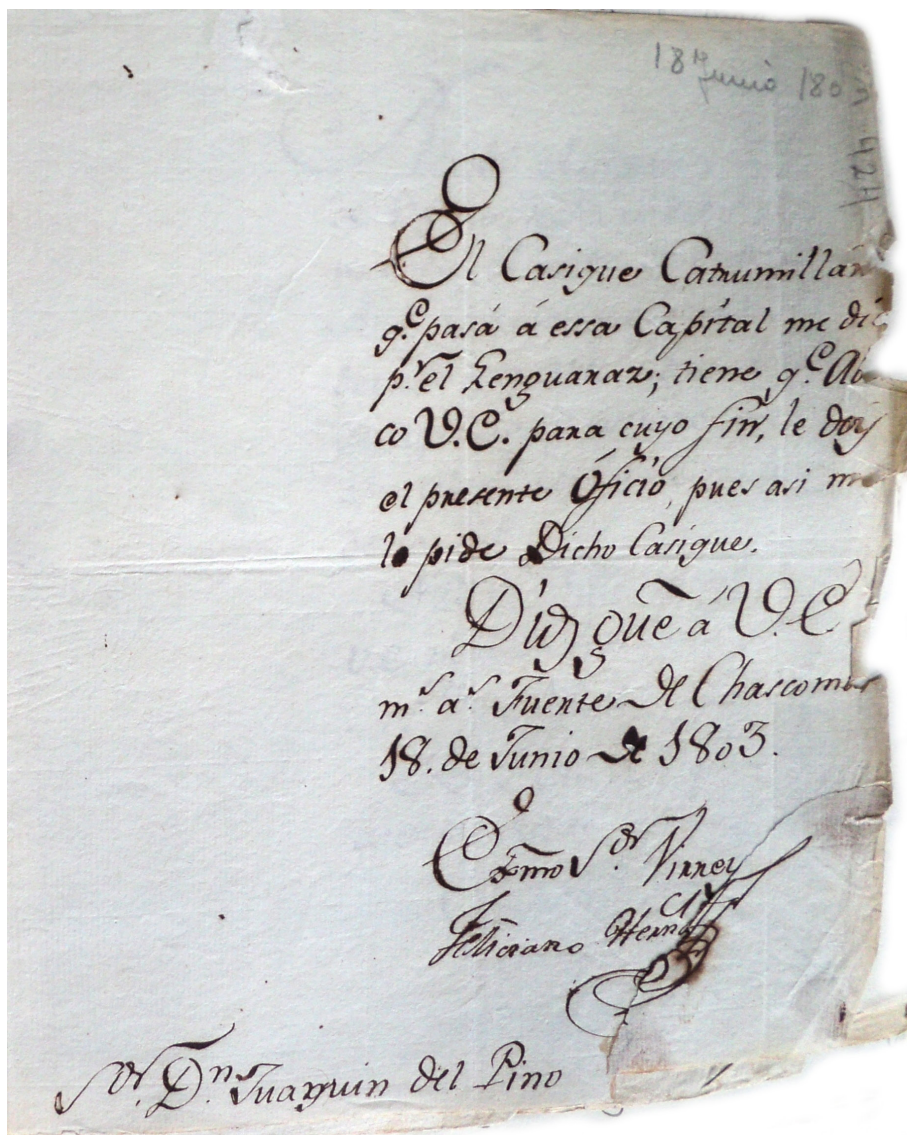 18 Junio 180
424
El Casique Catrumillan
q.e pasá á essa Capital me
p.r el Lenguaraz; tiene q.e
co V.E. para cuyo fin, le doy
el presente Oficio, pues asi
lo pide Dicho Casique.
Dios gue á V.E
m.s a.s Fuente de Chascomus
18. de Junio de 1803.
Exmo Sor Virrey
Feliciano Hern
Sor Dn Juaquin del Pino